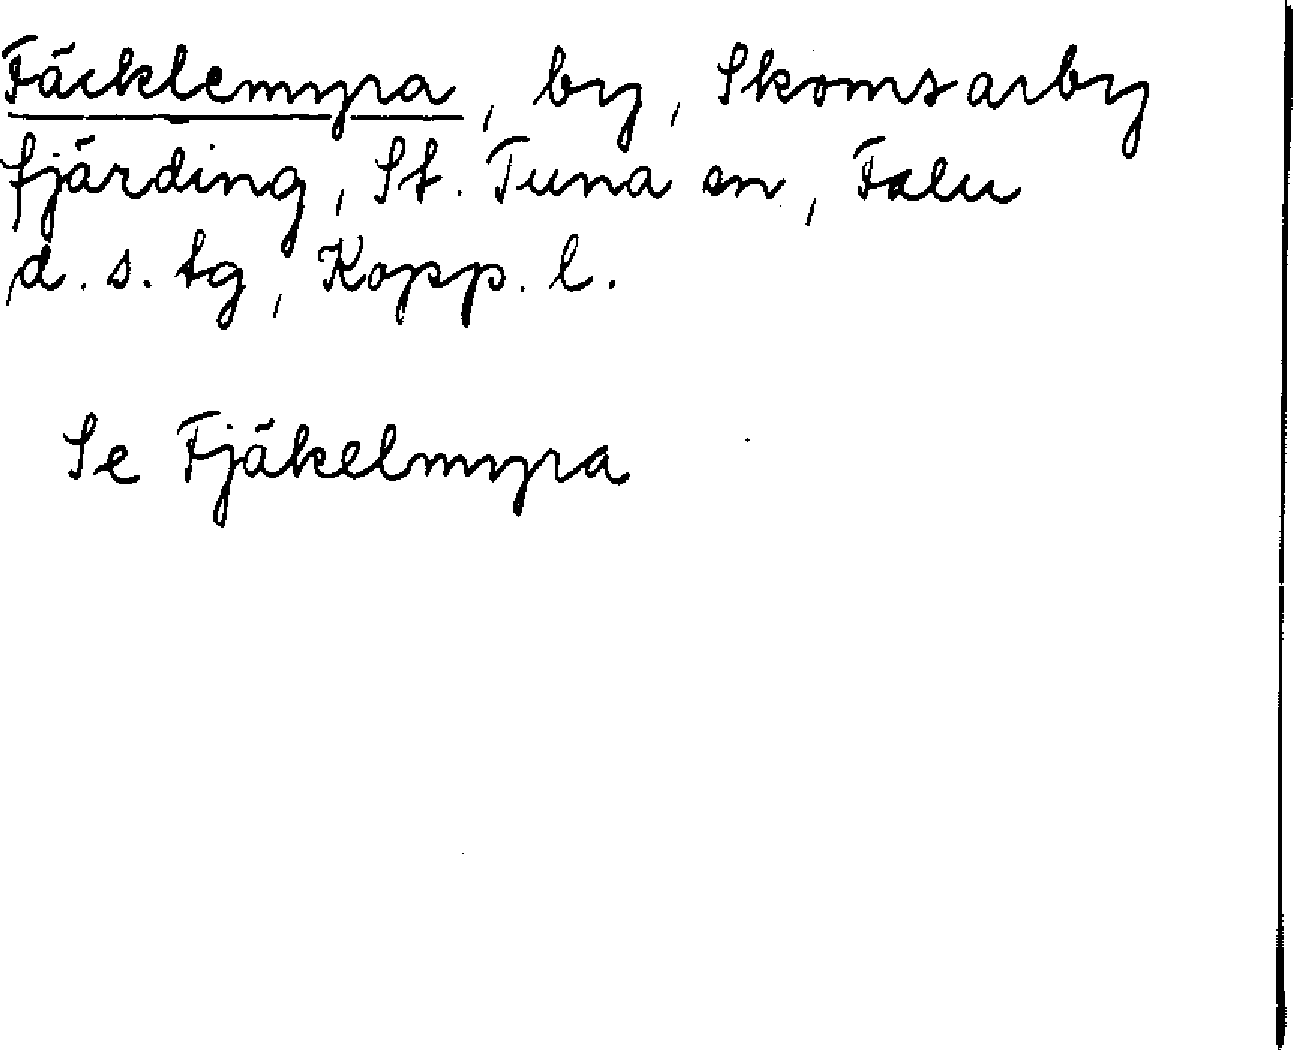 Fäcklemyra, by, Skomsarby
fjärding, St. Tuna sn, Falu
d. s. tg, Kopp. l.
Se Fjäkelmyra